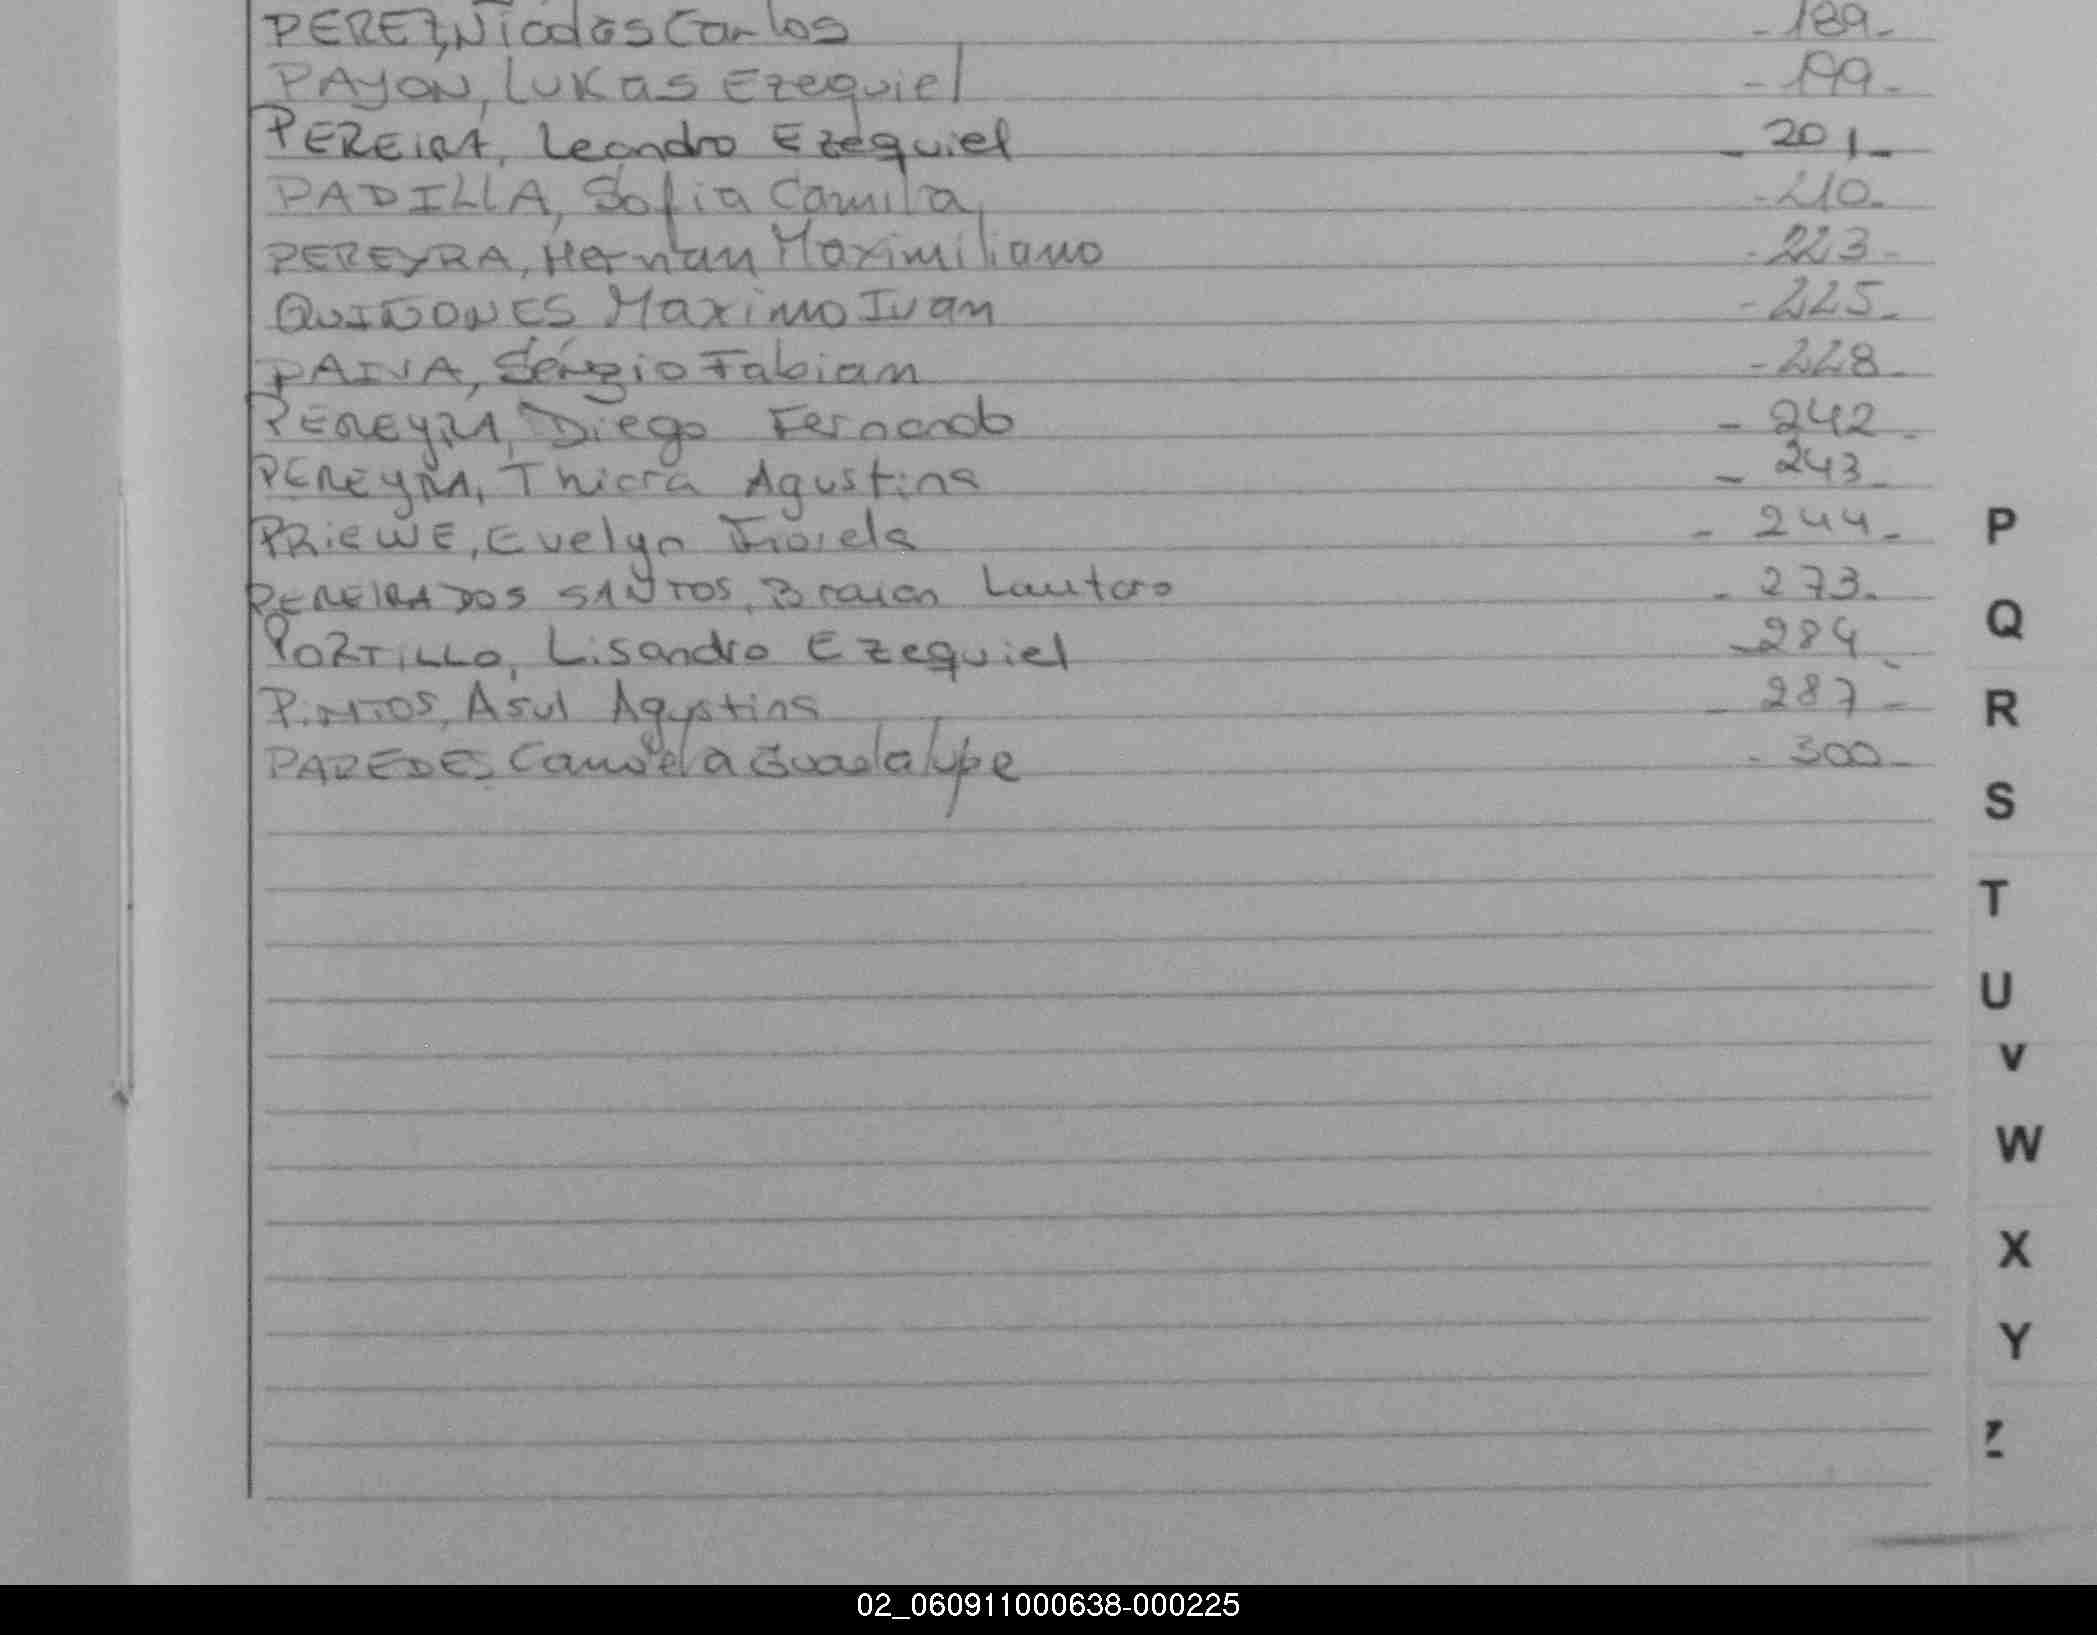 PEREZ, Nicolas Carlos - 189 -
PAYON, Lukas Ezequiel - 199 -
PEREIRA, Leandro Ezequiel - 201 -
PADILLA, Sofia Camila, - 210 -
PEREYRA, Hernan Maximiliano - 223 -
QUIÑONES Maximo Ivan - 225 -
PAIVA, Sergio Fabian - 228 -
PEREYRA, Diego Fernando - 242 -
PEREYRA, Thiara Agustina - 243 -
PRIEWE, Evelyn Fiorela - 244 -
PEREIRA DOS SANTOS, Braian Lautaro - 273 -
PORTILLO, Lisandro Ezequiel - 284 -
PINTOS, Asul Agustina - 287 -
PAREDES, Candela Guadalupe - 300 -
P
Q
R
S
T
U
V
W
X
Y
Z
02_060911000638-000225